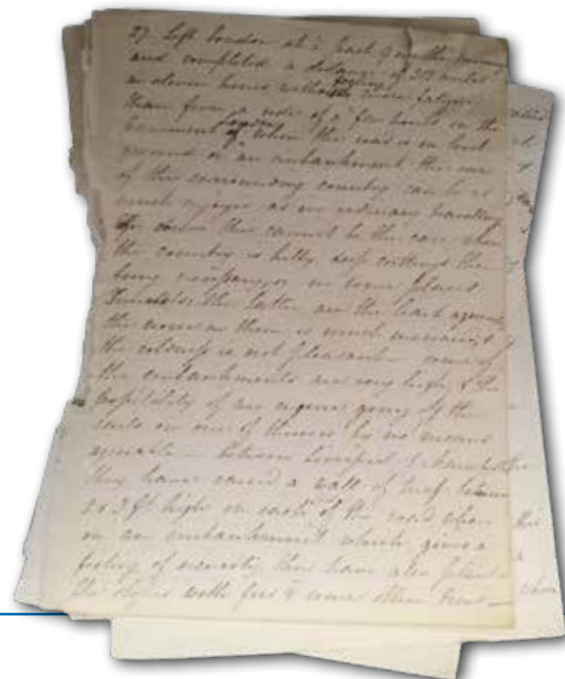 27 Left London at ½ past 9 in the
and completed a distance of 210 miles
in eleven hours without more fatigue
than from a ride of a few hours in the
when the road is on level
ground or an embankment the view
of the surrounding country can be as
much enjoyed as in ordinary travelling
of course this cannot be the case where
the country is hilly, deep cuttings then
being necessary in some places
Tunnels the latter are the least agreeable
the noise in them is much increased &
the coldness is not pleasant – some of
the embankments are very high & the
possibility of an engine going off the
rails on one of them is by no means
agreeable – between Liverpool &
they have raised a wall of turf between
2 & 3 ft high on each of the road when
on an embankment which gives a
feeling of security they have also planted
the slopes with firs & some other trees –